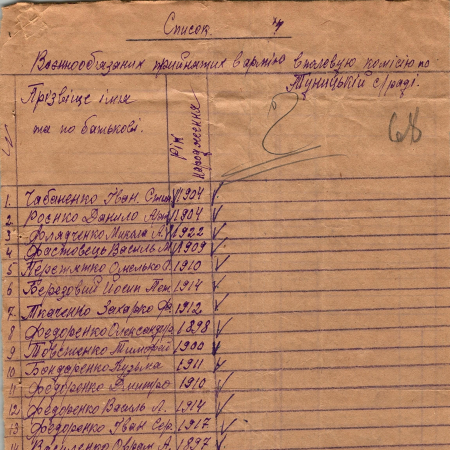 Список
Военнообязаних прийнятих в армію в палевую комісію по
Туницькій с/раді.
№
Прізвіще імя
та по батькові.
Рік
народження
68
1. Чабаненко Іван 1904
2. Роєнко Данило 1904
3 Фладченко Микола А. 1922
4 Фастовець Василь М. 1909
5 Перетятко Омелько 1910
6 Березовий Йосип 1914
7 Ткаченко Захарко 1912
8 Федоренко Олександр 1898
9 Тимофій 1900
10 Бондаренко Кузьма 1911
11 Федоренко Дмитро 1910
12 Федоренко Василь Л. 1914
13 Федоренко Іван Сер. 1917
14 Василенко Оврам А. 1897